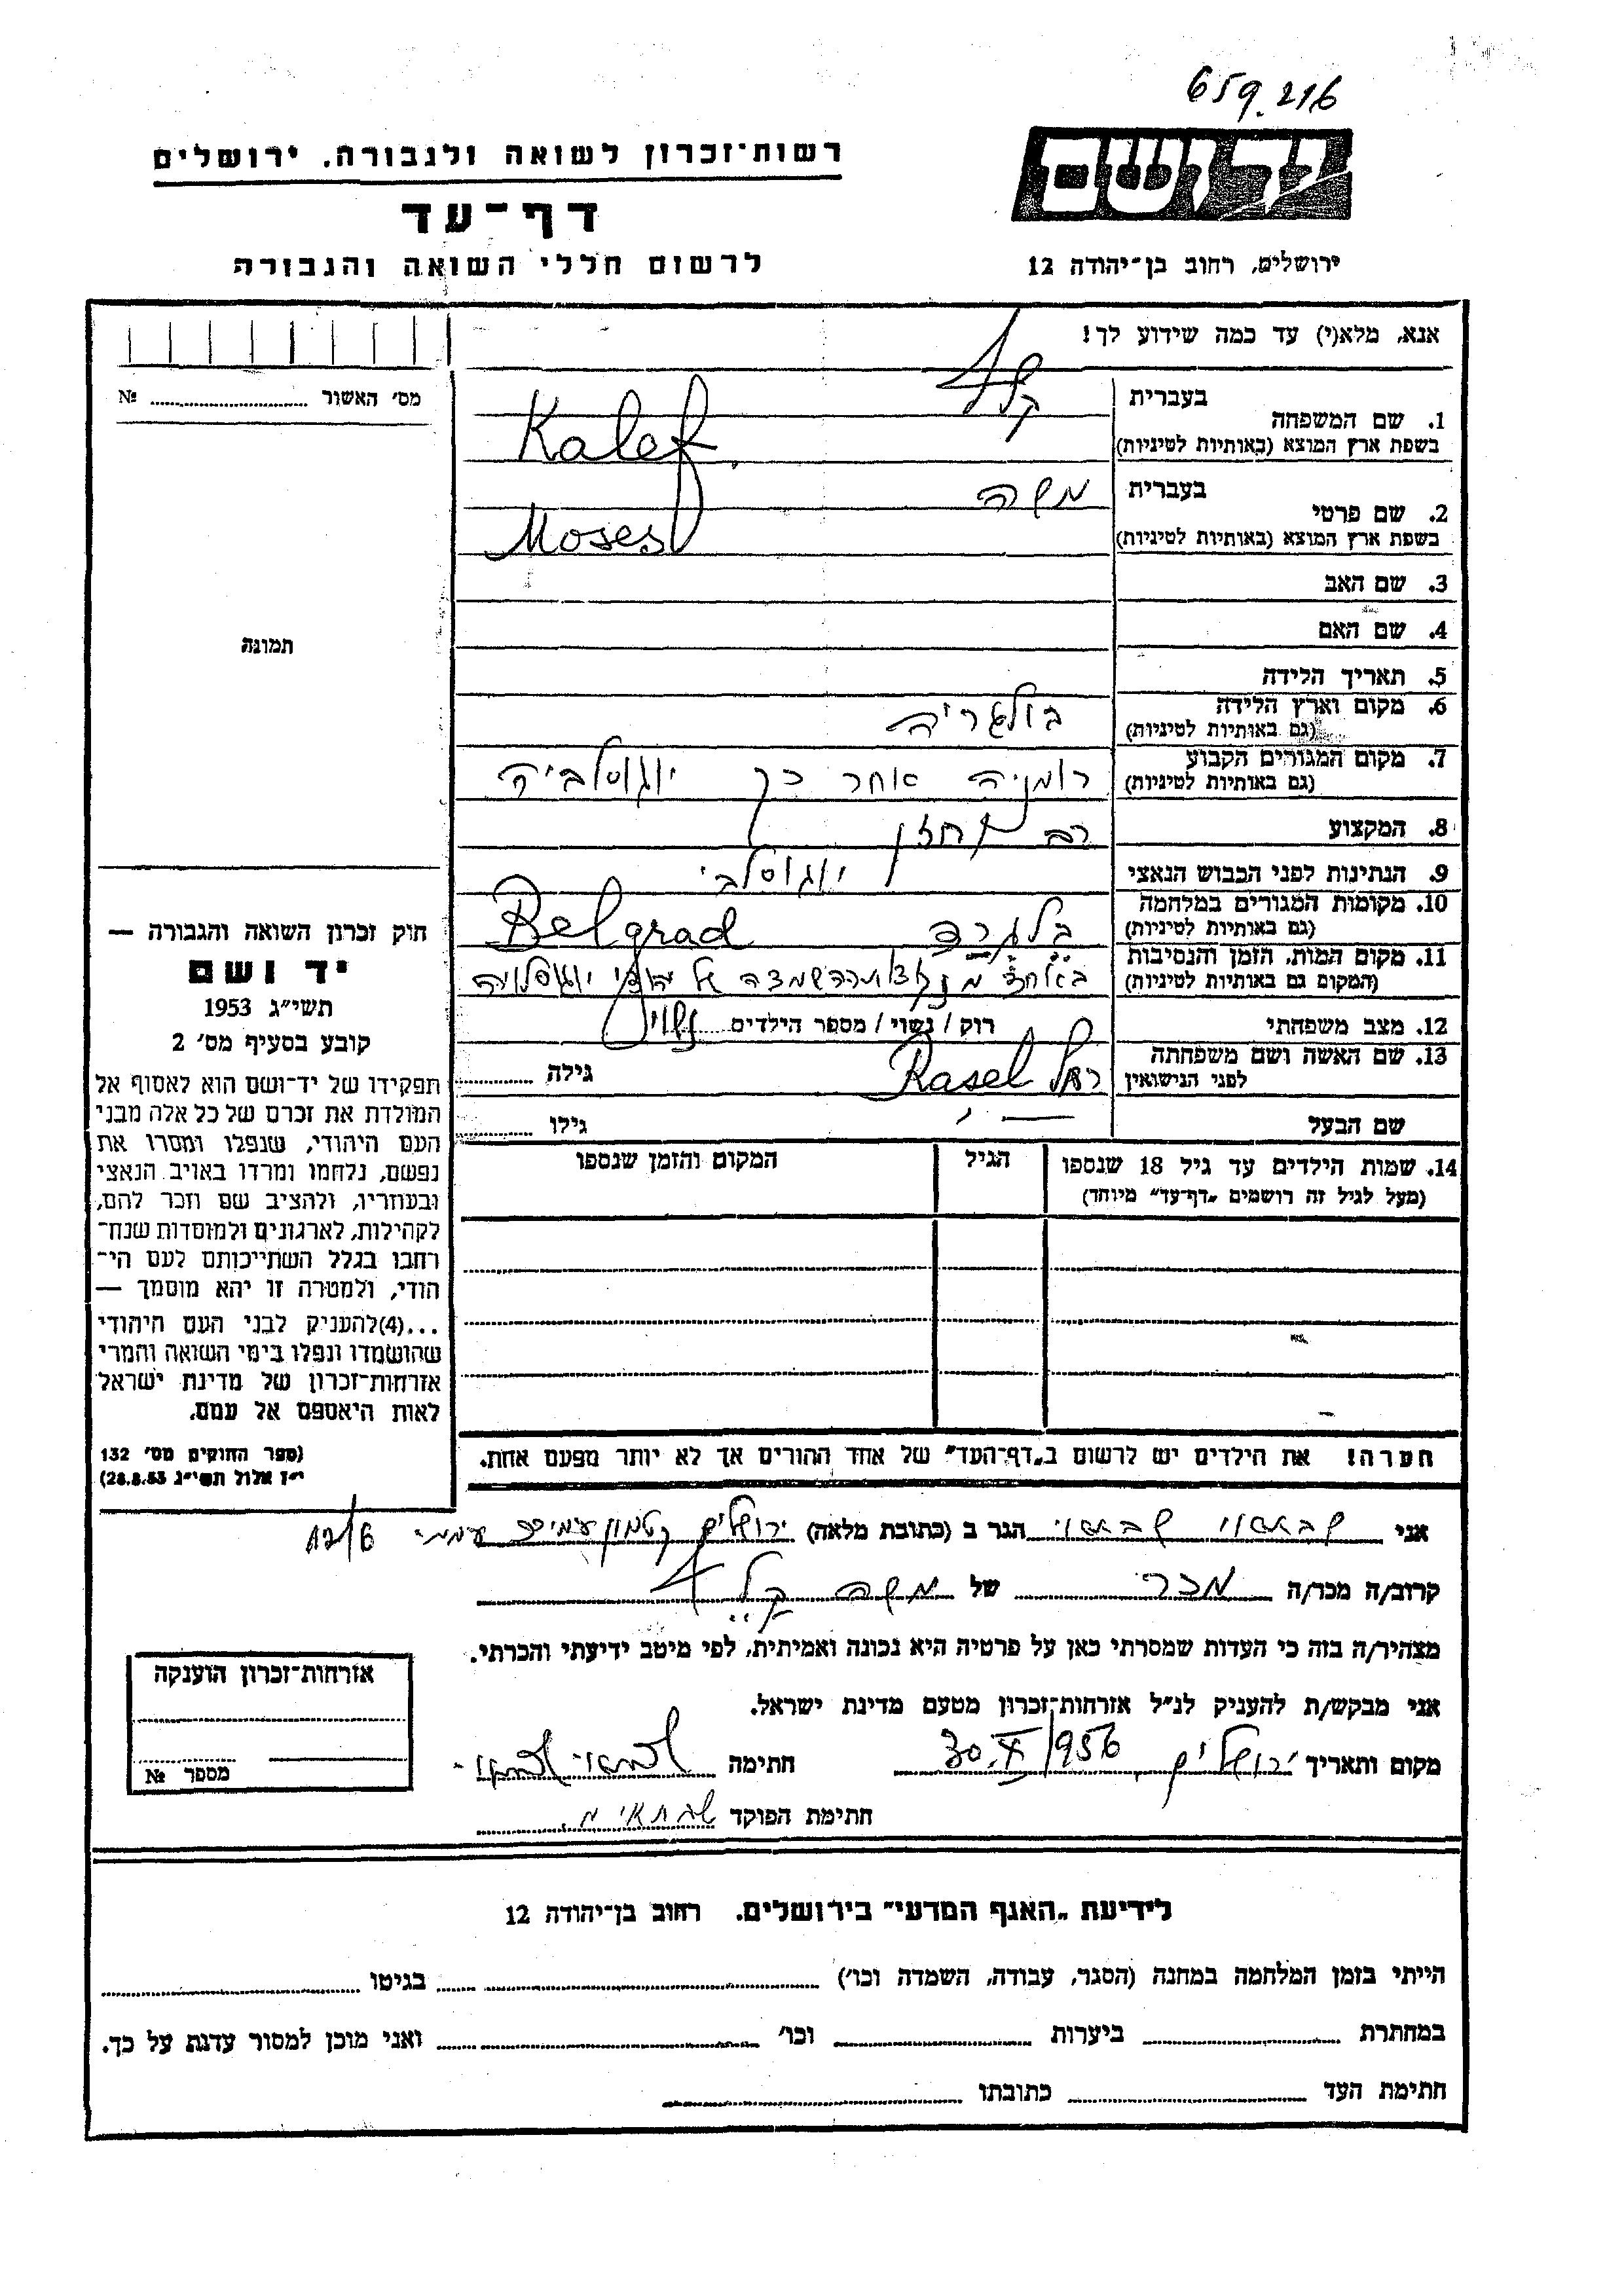 659.216
יד ושם
רשות־זכרון לשואה ולגבורה, ירושלים
דף־עד
ירושלים, רחוב בן־יהודה 12
לרשום חללי השואה והגבורה
אנא, מלא(י) עד כמה שידוע לך!
מס׳ האשור № 
1. שם המשפחה בעברית קלף
בשפת ארץ המוצא (באותיות לטיניות) Kalef
2. שם פרטי בעברית משה
בשפת ארץ המוצא (באותיות לטיניות) Moses
3. שם האב
4. שם האם
5. תאריך הלידה
6. מקום וארץ הלידה בולגריה
(גם באותיות לטיניות)
7. מקום המגורים הקבוע רומניה אחר כך יוגוסלביה
(גם באותיות לטיניות)
8. המקצוע רב וחזן
9. הנתינות לפני הכבוש הנאצי יוגוסלבי
10. מקומות המגורים במלחמה בלגרד Belgrad
(גם באותיות לטיניות)
11. מקום המות, הזמן והנסיבות באחד ההשמדה של יהודי יוגוסלויה
(המקום גם באותיות לטיניות)
12. מצב משפחתי רוק / נשוי / מספר הילדים נשוי
13. שם האשה ושם משפחתה רחל Rasel גילה
לפני הנישואין
שם הבעל — גילו
14. שמות הילדים עד גיל 18 שנספו הגיל המקום והזמן שנספו
(מעל לגיל זה רושמים „דף־עד” מיוחד)
הערה! את הילדים יש לרשום ב„דף־העד” של אחד ההורים אך לא יותר מפעם אחת.
תמונה
חוק זכרון השואה והגבורה —
יד ושם
תשי״ג 1953
קובע בסעיף מס׳ 2
תפקידו של יד־ושם הוא לאסוף אל
המולדת את זכרם של כל אלה מבני
העם היהודי, שנפלו ומסרו את
נפשם, נלחמו ומרדו באויב הנאצי
ובעוזריו, ולהציב שם וזכר להם,
לקהילות, לארגונים ולמוסדות שנח־
רחבו בגלל השתייכותם לעם הי־
הודי, ולמטרה זו יהא מוסמך —
...(4)להעניק לבני העם היהודי
שהושמדו ונפלו בימי השואה והמרי
אזרחות־זכרון של מדינת ישראל
לאות היאספם אל עמם.
(ספר החוקים מס׳ 132
י״ז אלול תשי״ג 28.8.53)
אני שבתאי הגר ב (כתובת מלאה) ירושלים קטמון עממי 12/6
קרוב/ה מכר/ה מכר של משה קלף
מצהיר/ה בזה כי העדות שמסרתי כאן על פרטיה היא נכונה ואמיתית, לפי מיטב ידיעתי והכרתי.
אני מבקש/ת להעניק לנ״ל אזרחות־זכרון מטעם מדינת ישראל.
מקום ותאריך ירושלים 30.X.1956 חתימה
חתימת הפוקד שבתאי מ.
אזרחות־זכרון הוענקה
מספר №
לידיעת „האגף המדעי” בירושלים, רחוב בן־יהודה 12
הייתי בזמן המלחמה במחנה (הסגר, עבודה, השמדה וכו׳) בגיטו
במחתרת ביערות וכו׳ ואני מוכן למסור עדות על כך.
חתימת העד כתובתו